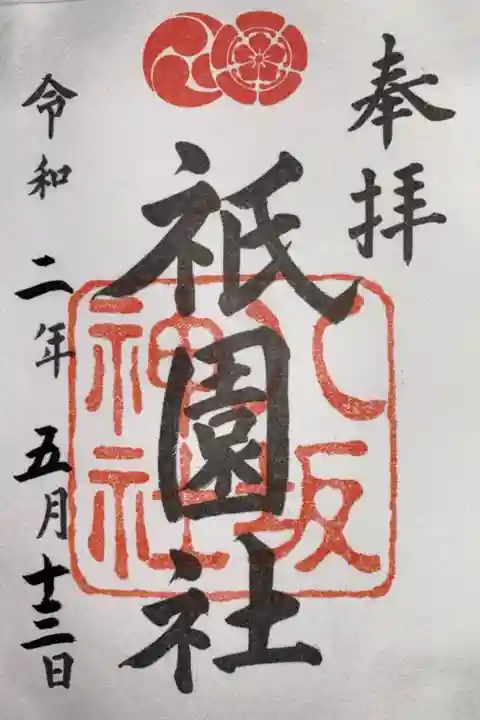 奉拝
祇園社
八坂
神社
令和二年五月十三日